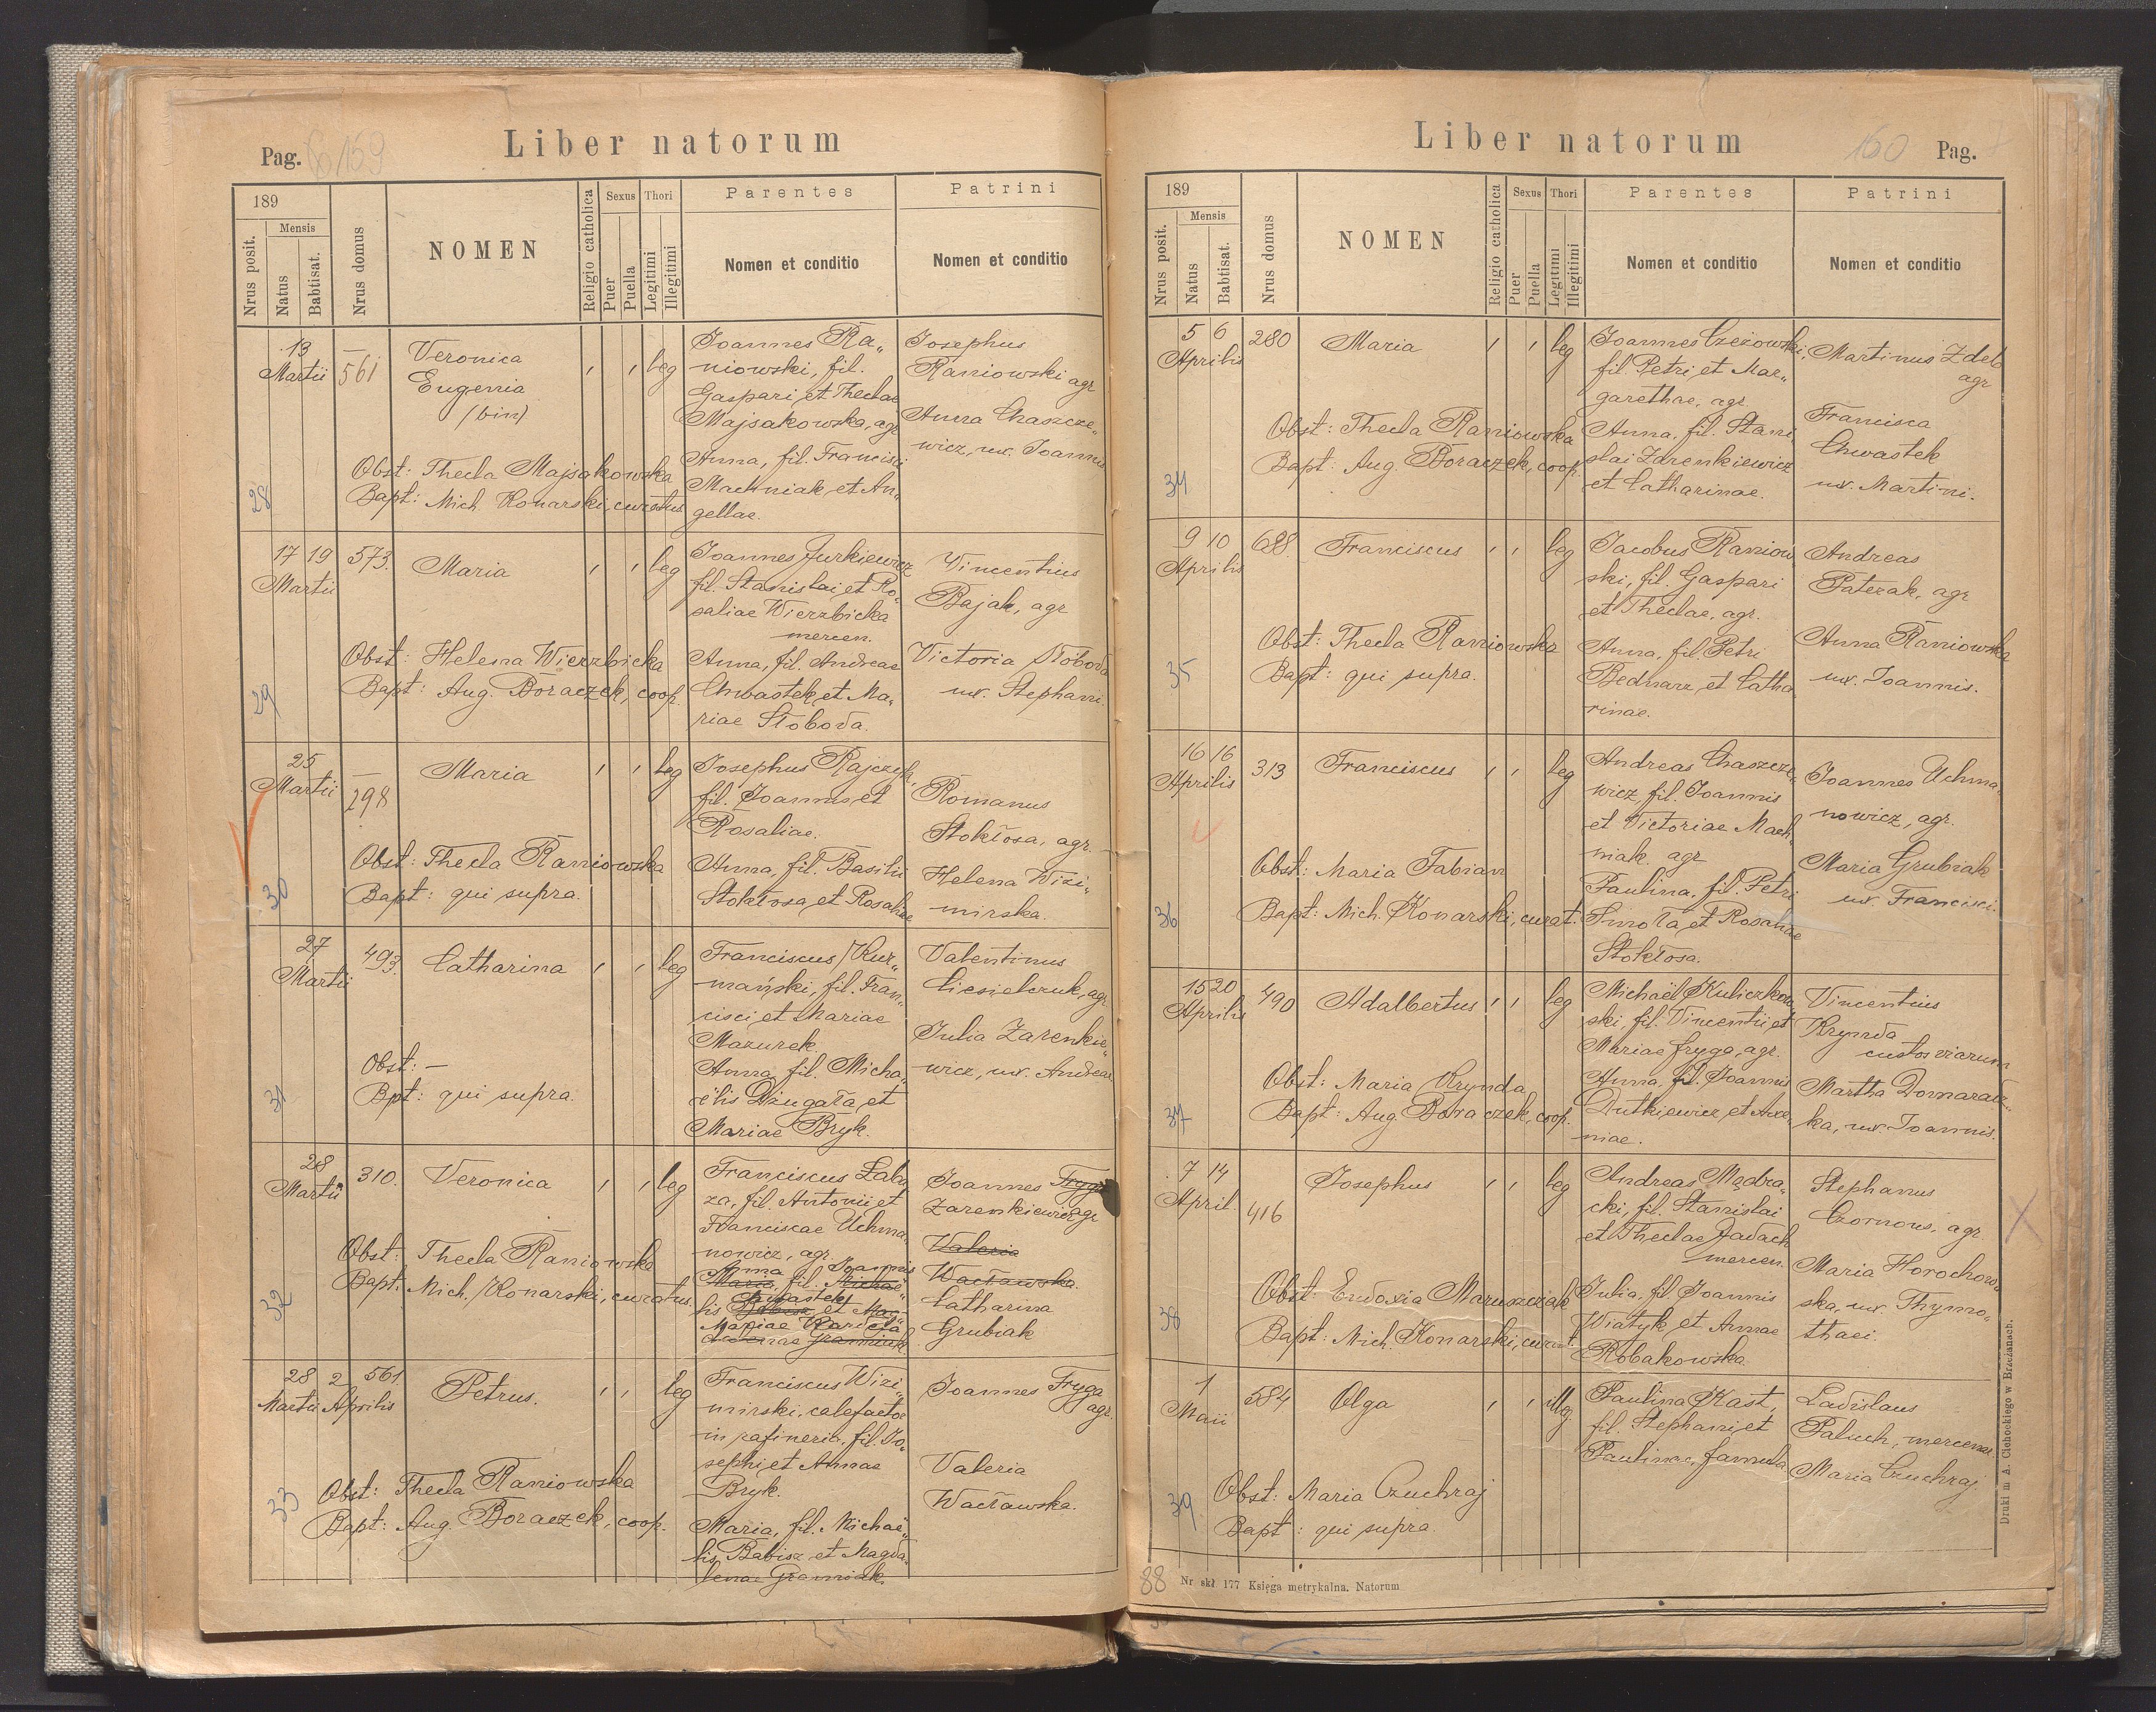 Pag. 159
Liber natorum
189
Nrus posit.
Mensis
Natus
Babtisat.
Nrus domus
NOMEN
Religio catholica
Sexus
Puer
Puella
Thori
Legitimi
Illegitimi
Parentes
Nomen et conditio
Patrini
Nomen et conditio
28
13
Martii
561
Veronica
Eugenia
(bin)
leg
Obst: Thecla Majsakowska
Bapt: Mich Konarski, curatus
Joannes Ra„
niowski, fil.
Gaspari et Theclae
Majsakowska, agr
Anna, fil. Francisci
Machniak et An„
gellae.
Josephus
Raniowski agr
Anna Chaszcze„
wicz, ux. Joannis
29
17 19
Martii
573.
Maria
leg
Obst: Helena Wierzbicka
Bapt: Aug. Boraczek, coop.
Joannes Jurkiewicz
fil. Stanislai et Ro„
saliae Wierzbicka
mercen.
Anna, fil. Andreae
Chwastek et Ma„
riae Słoboda.
Vincentius
Bajak, agr
Victoria Słoboda
ux. Stephani.
30
25
Martii
298
Maria
leg
Obst: Thecla Raniowska
Bapt: qui supra.
Josephus Rajczyk,
fil. Joannis et
Rosaliae.
Anna, fil. Basilii
Stokłosa et Rosaliae
Romanus
Stokłosa, agr.
Helena Wizi„
mirska.
31
27
Martii
493.
Catharina
leg
Obst: –
Bpt: qui supra.
Franciscus Kur„
mański, fil. Fran„
cisci et Mariae
Mazurek
Anna, fil. Micha„
ëlis Dżugała et
Mariae Bryk.
Valentinus
Ciesielczuk, agr.
Julia Zarenkie„
wicz, ux. Andreae
32
28
Martii
310.
Veronica
leg
Obst: Thecla Raniowska
Bapt: Mich. Konarski, curatus.
Franciscus Łabu
za, fil. Antonii et
Franciscae Uchma„
nowicz, agr.
Anna Joannis
Maria, fil. Michaë„
Chwastek
lis Babisz et Mag„
Mariae
dalenae Gramiak
Joannes Fryga
Zarenkiewicz agr
Valeria
Wacławska.
Catharina
Grubiak
33
28 2
Martii Aprilis
561.
Petrus.
leg
Obst: Thecla Raniowska
Bapt: Aug. Boraczek, coop.
Franciscus Wizi„
mirski, calefactor
in rafineria, fil. Jo„
sephi et Annae
Bryk.
Maria, fil. Michaë„
lis Babisz et Magda„
lenae Gramiak.
Joannes Fryga
agr.
Valeria
Wacławska.
Liber natorum
160 Pag.
189
Nrus posit.
Mensis
Natus
Babtisat.
Nrus domus
NOMEN
Religio catholica
Sexus
Puer
Puella
Thori
Legitimi
Illegitimi
Parentes
Nomen et conditio
Patrini
Nomen et conditio
34
5 6
Aprilis
280
Maria
leg
Obst: Thecla Raniowska
Bapt: Aug. Boraczek, coop.
Joannes Czeżowski,
fil. Petri et Mar„
garethae, agr
Anna, fil. Stani„
slai Zarenkiewicz
et Catharinae.
Martinus Zdeb
agr
Francisca
Chwastek
ux. Martini.
35
9 10
Aprilis
688
Franciscus
leg
Obst: Thecla Raniowska
Bapt: qui supra.
Jacobus Raniow
ski, fil. Gaspari
et Theclae, agr.
Anna, fil. Petri
Bednarz et Catha
rinae.
Andreas
Paterak, agr
Anna Raniowska
ux. Joannis.
36
16 16
Aprilis
313
Franciscus
leg
Obst: Maria Fabian
Bapt: Mich. Konarski, curat.
Andreas Chaszcze„
wicz, fil. Joannis
et Victoriae Mach
niak agr
Paulina, fil. Petri
Smoła et Rosaliae
Stokłosa.
Joannes Uchma„
nowicz, agr.
Maria Grubiak
ux. Francisci.
37
15 20
Aprilis
490
Adalbertus
leg
Obst: Maria Krynda
Bapt: Aug. Boraczek, coop.
Michaël Kuliczkow
ski, fil. Vincentii et
Mariae Fryga, agr.
Anna, fil. Joannis
Dutkiewicz et Axe„
niae.
Vincentius
Krynda
custos viarum
Martha Domaradz„
ka, ux. Joannis.
38
7 14
April.
416
Josephus
leg
Obst: Eudoxia Maruszczak
Bapt: Mich. Konarski, curat.
Andreas Mądra„
cki, fil. Stanislai
et Theclae Jadach
mercen.
Julia, fil. Joannis
Wiatyk et Annae
Robakowska.
Stephanus
Czornous, agr.
Maria Horochow„
ska, ux. Thymo„
thaei.
39
1
Maii
584
Olga
illeg
Obst: Maria Czuchraj
Bapt: qui supra.
Paulina Kast,
fil. Stephani et
Paulinae, famula
Ladislaus
Paluch, mercenar.
Maria Czuchraj.
88
Nr skł 177 Księga metrykalna. Natorum
Druki m A. Ciehockiego w Brzeżanach.